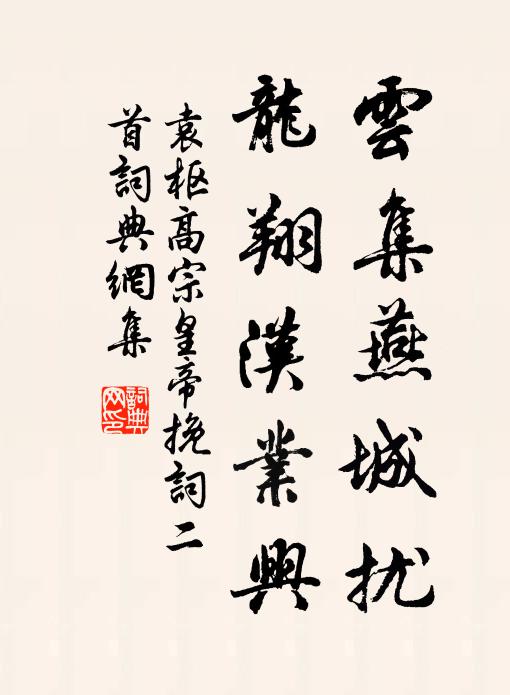 雲集燕城扰
龍翔漢業興
袁枢高宗皇帝挽詞二
首詞典網集
詞典
网印